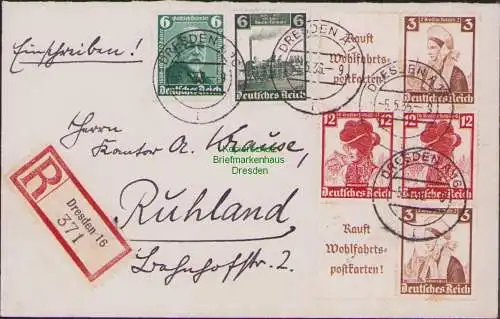 Einschreiben!
6 6
Deutsches Reich
Deutsches Reich
DRESDEN A 16
DRESDEN A 16
5.36.-9
Kauft
Wohlfahrts-
postkarten!
3
Deutsches Reich
DRESDEN A 16
-5.5.36.-9
12 12
Deutsches Reich
Deutsches Reich
DRESDEN A 16
Herrn
Kantor A. Krause,
Briefmarkenhaus
Dresden
Ruhland
Bahnhofstr. 2.
R
Dresden 16
371
Kauft
Wohlfahrts-
postkarten!
3
Deutsches Reich